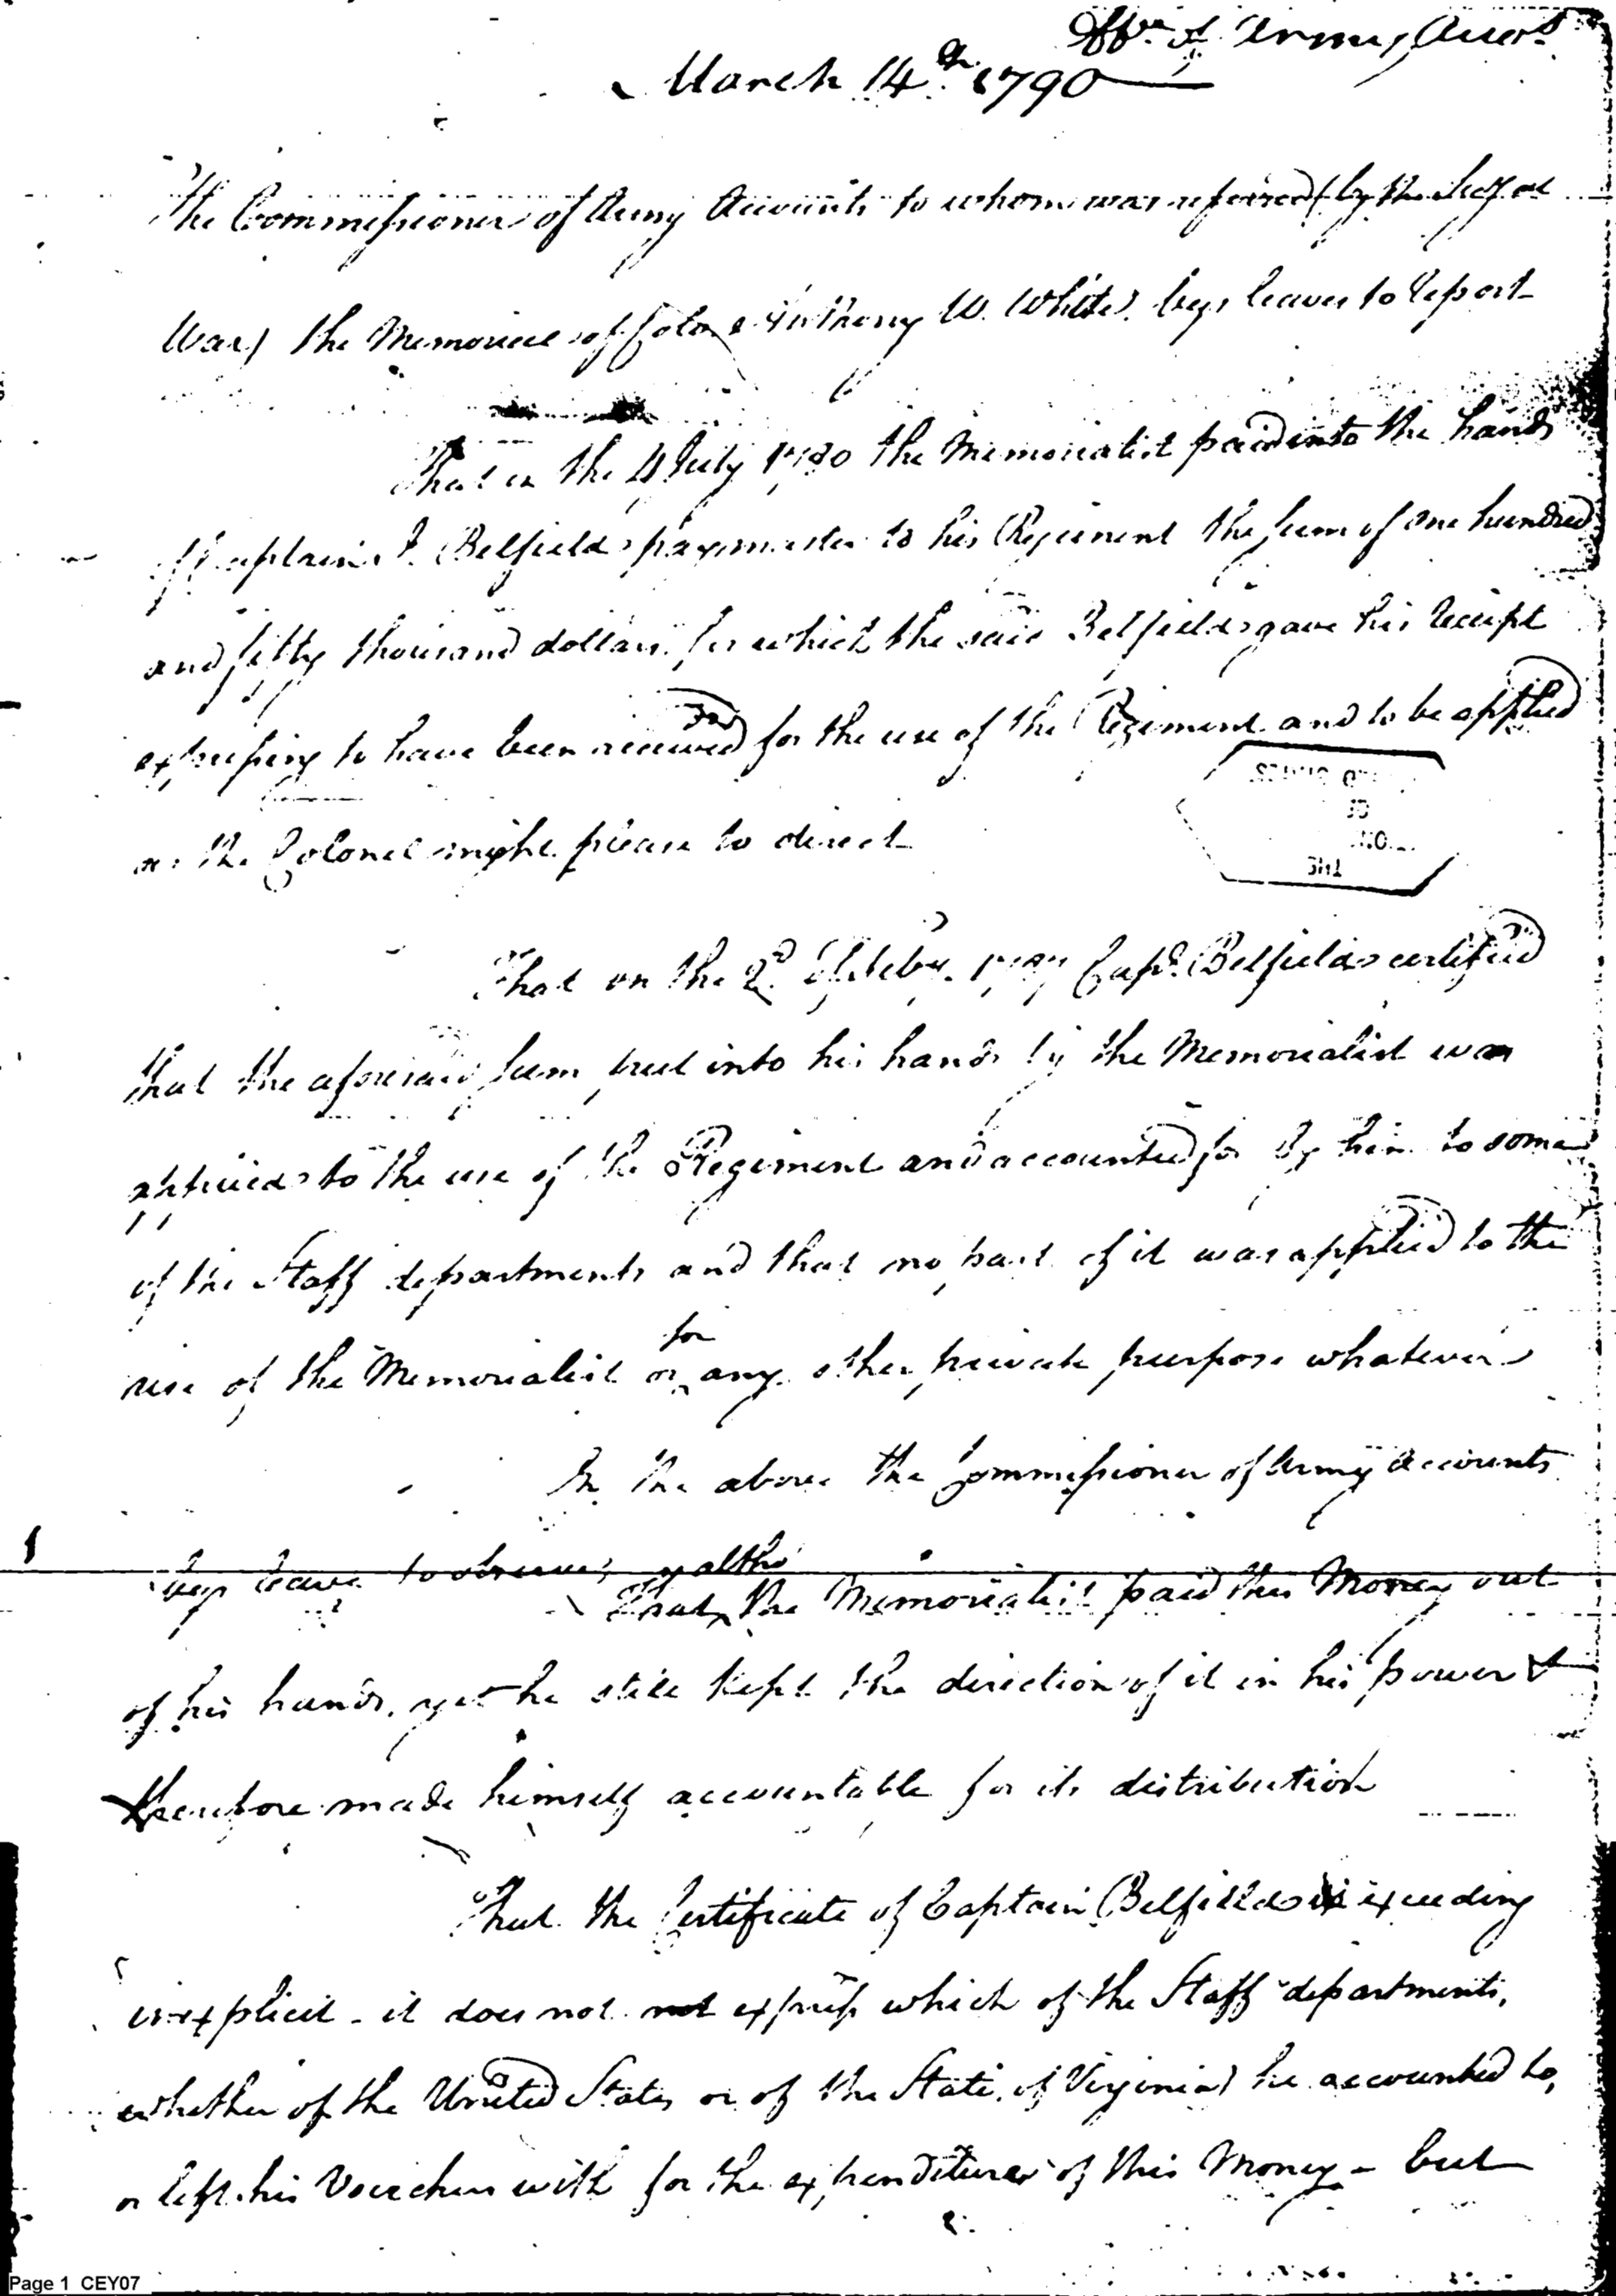 Offce of Army Accots
March 14th 1790
The Commissioner of Army Accounts to whom was referred (by the Secy at
War) the Memorial of Colone Anthony W. White begs leave to report
That on the 4 July 1780 the Memorialist paid into the hands
of Captain Belfield paymaster to his Regiment the sum of one hundred
and fifty thousand dollars for which the said Belfield gave his receipt
expressing to have been received for the use of the Regiment and to be applied
as the Colonel might please to direct
That on the 2d Capt. Belfield certified
that the aforesaid sum put into his hands by the Memorialist was
applied to the use of the Regiment and accounted for by him to some
of the Staff departments and that no part of it was applied to the
use of the Memorialist or for any other private purpose whatever
On the above the Commissioner of Army Accounts
begs leave to observe,
That altho the Memorialist paid this Money out
of his hands, yet he still kept the direction of it in his power &
therefore made himself accountable for its distribution
That the Certificate of Captain Belfield is exceeding
inexplicit - it does not not express which of the Staff departments,
whether of the United States or of the State of Virginia he accounted to,
or left his Vouchers with for the expenditure of this Money - but
Page 1 CEY07